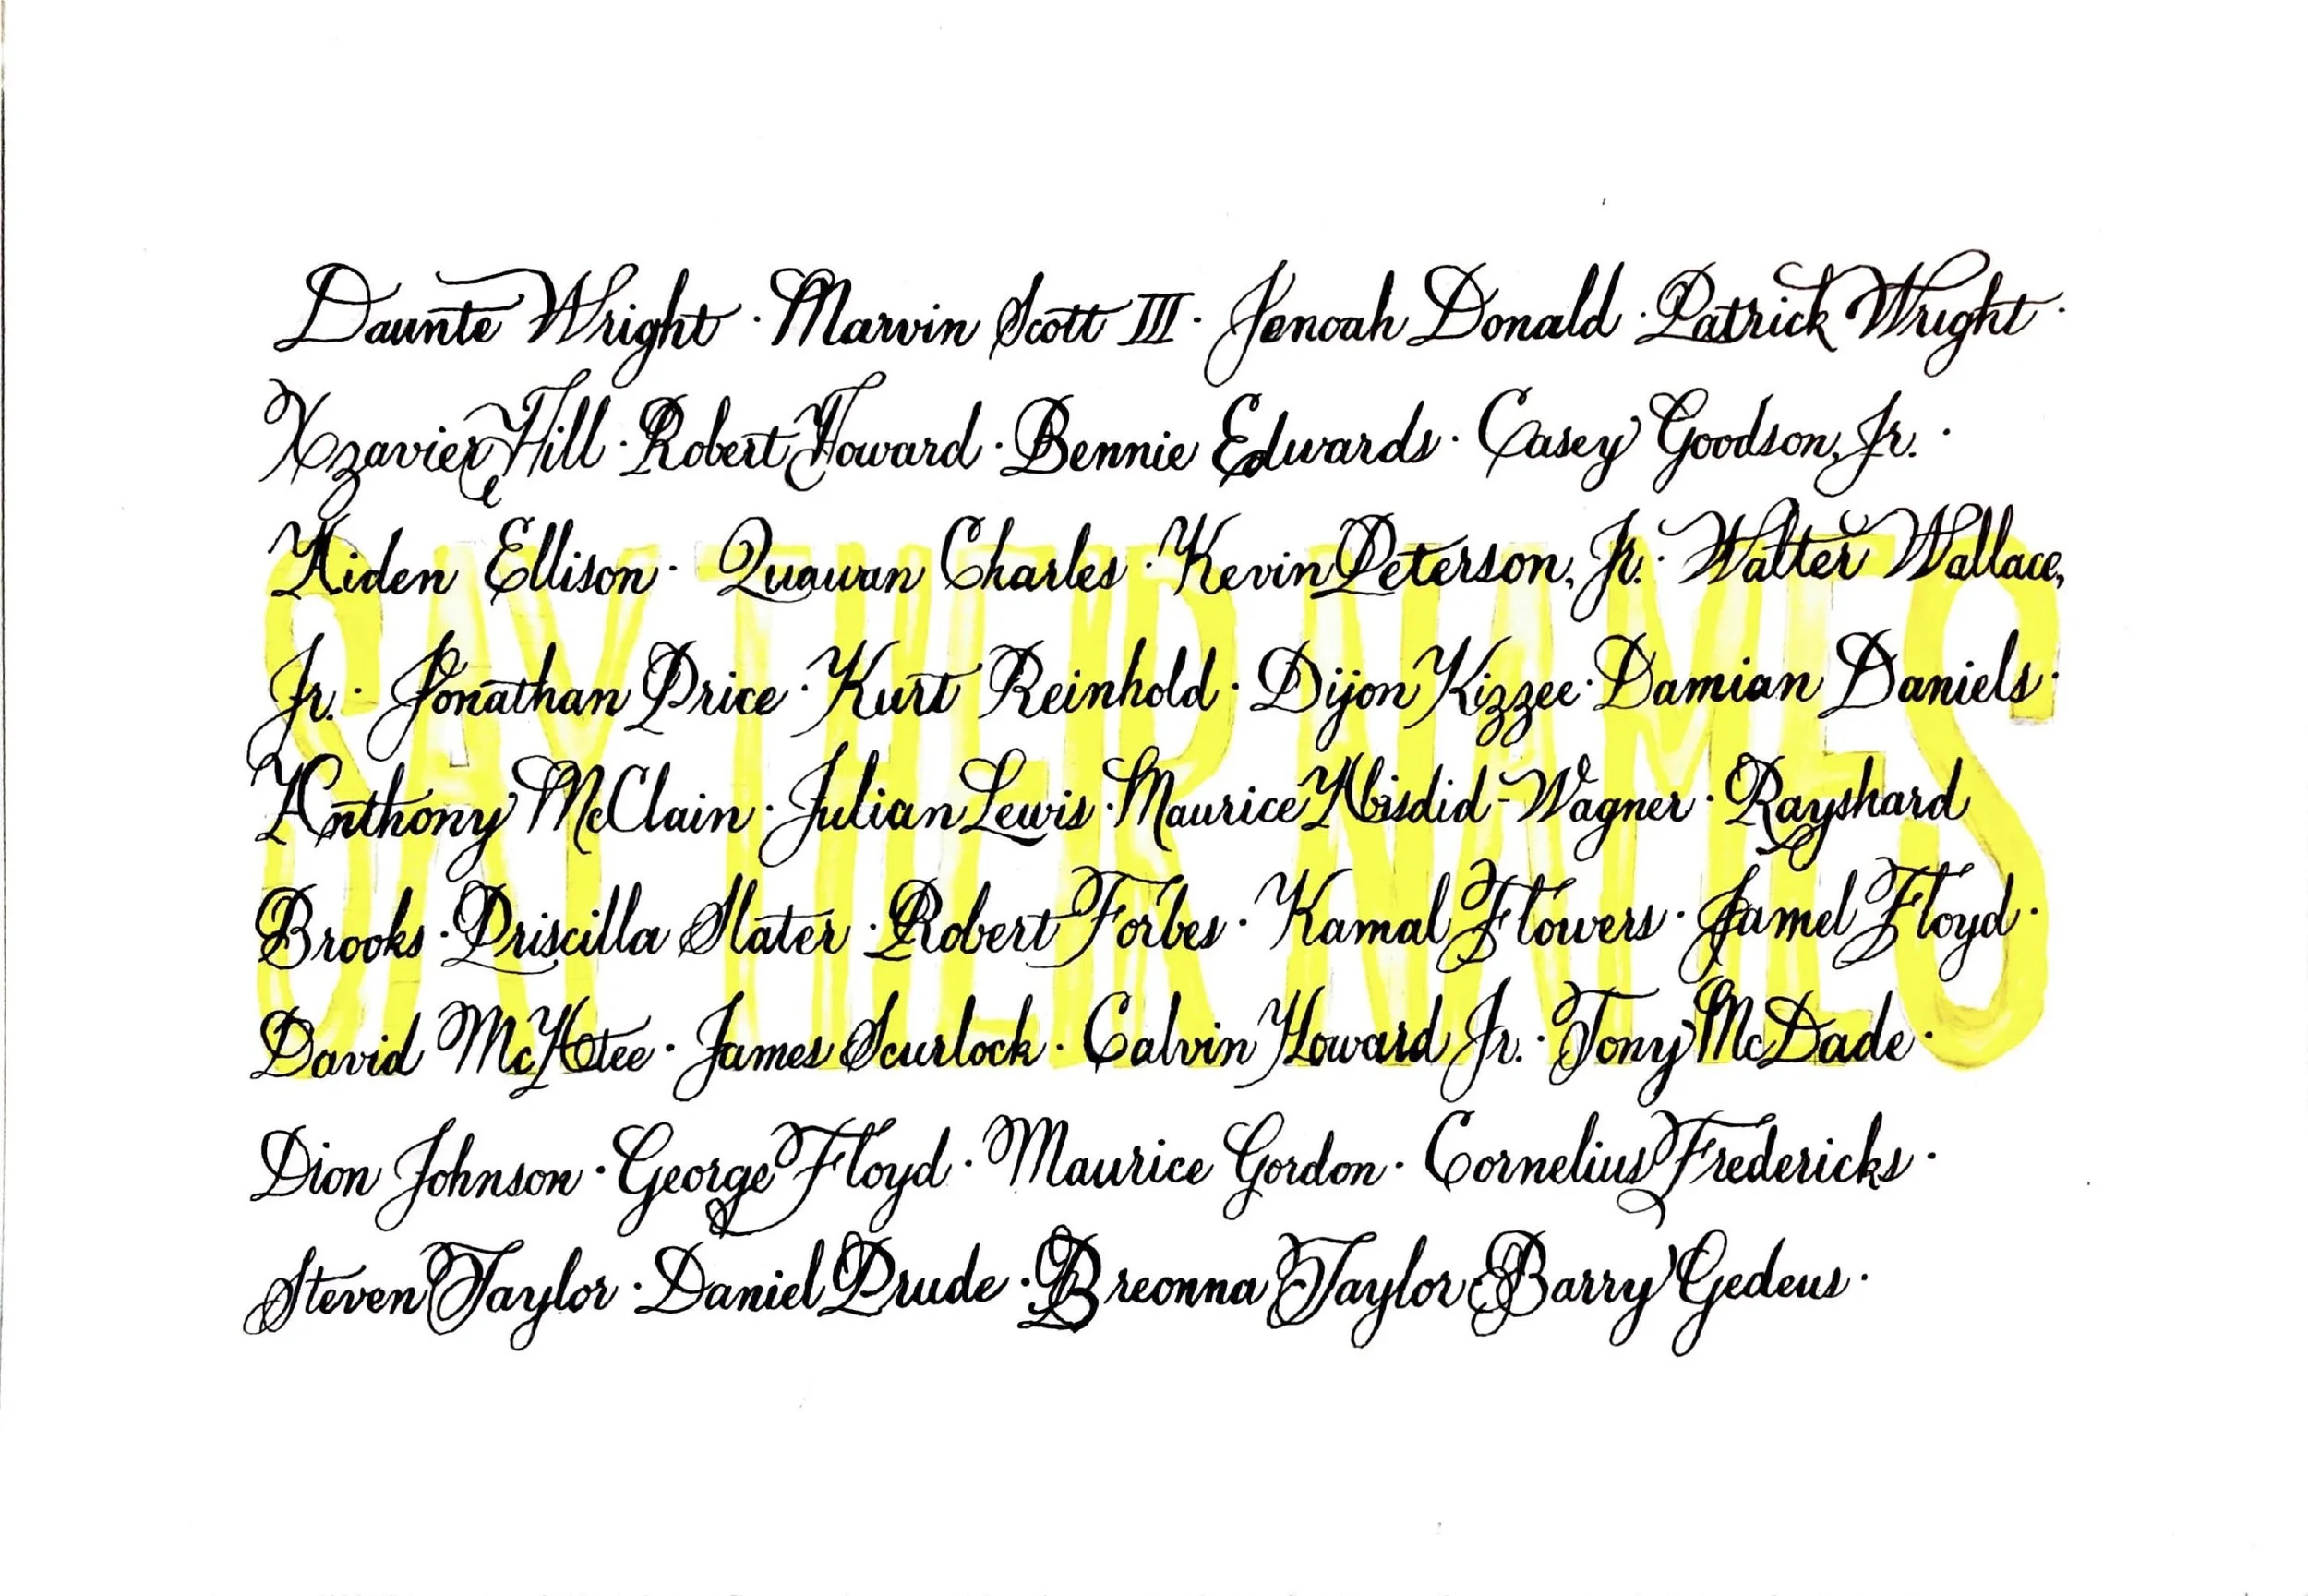 Daunte Wright · Marvin Scott III · Jenoah Donald · Patrick Wright ·
Xzavier Hill · Robert Howard · Bennie Edwards · Casey Goodson, Jr. ·
Aiden Ellison · Quawan Charles · Kevin Peterson, Jr. · Walter Wallace,
Jr. · Jonathan Price · Kurt Reinhold · Dijon Kizzee · Damian Daniels ·
Anthony McClain · Julian Lewis · Maurice Abisdid-Wagner · Rayshard
Brooks · Priscilla Slater · Robert Forbes · Kamal Flowers · Jamel Floyd ·
David McAtee · James Scurlock · Calvin Howard Jr. · Tony McDade ·
Dion Johnson · George Floyd · Maurice Gordon · Cornelius Fredericks ·
Steven Taylor · Daniel Prude · Breonna Taylor Barry Gedeus ·
SAY THEIR NAMES